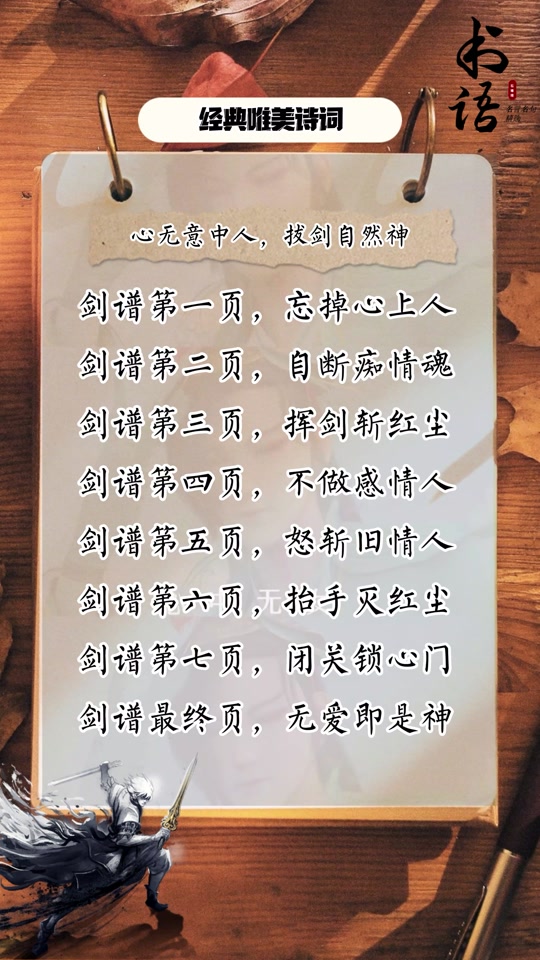 书语
经典唯美诗词
心无意中人，拔剑自然神
剑谱第一页，忘掉心上人
剑谱第二页，自断痴情魂
剑谱第三页，挥剑斩红尘
剑谱第四页，不做感情人
剑谱第五页，怒斩旧情人
剑谱第六页，抬手灭红尘
剑谱第七页，闭关锁心门
剑谱最终页，无爱即是神